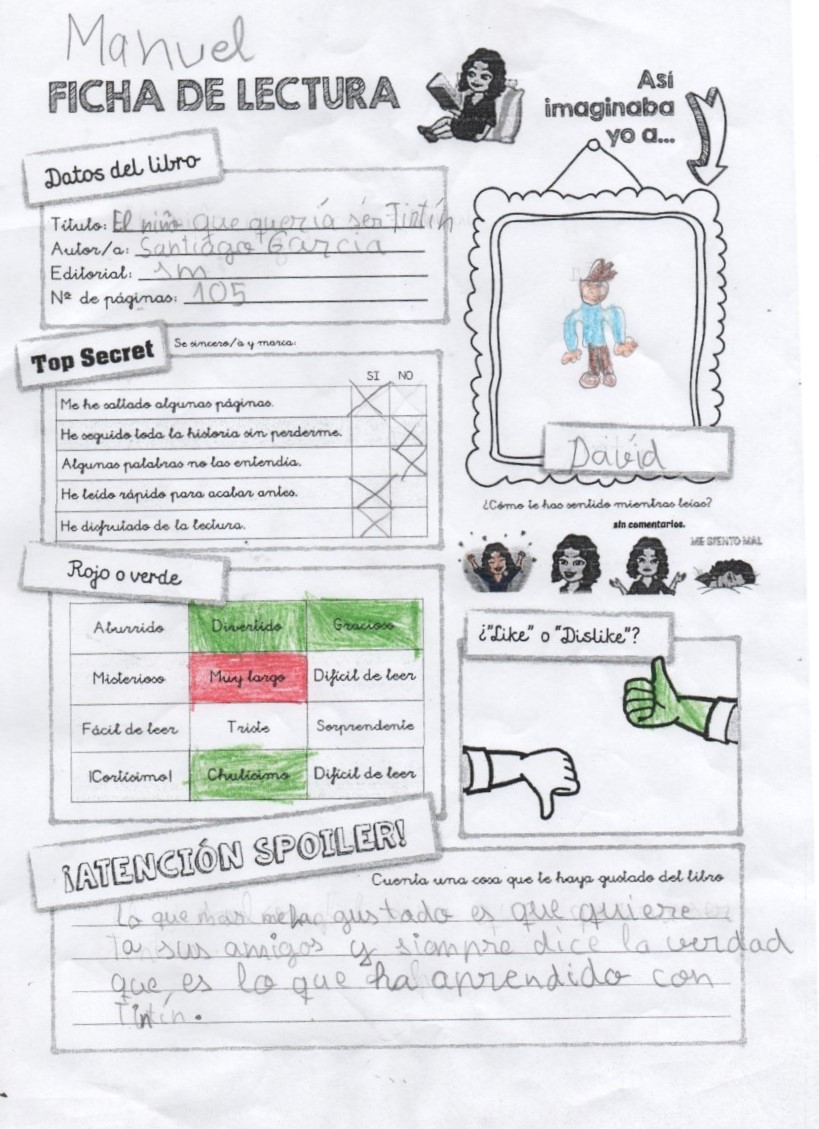 Manuel
FICHA DE LECTURA
Así
imaginaba
yo a...
Datos del libro
Título: El niño que quería ser Tintín
Autor/a: Santiago García
Editorial: sm
Nº de páginas: 105
Top Secret
Se sincero/a y marca:
SI NO
Me he saltado algunas páginas.
He seguido toda la historia sin perderme.
Algunas palabras no las entendía.
He leído rápido para acabar antes.
He disfrutado de la lectura.
David
¿Cómo te has sentido mientras leías?
sin comentarios.
ME SIENTO MAL
Rojo o verde
Aburrido Divertido Gracioso
Misterioso Muy largo Difícil de leer
Fácil de leer Triste Sorprendente
¡Cortísimo! Chulísimo Difícil de leer
¿"Like" o "Dislike"?
¡ATENCIÓN SPOILER!
Cuenta una cosa que te haya gustado del libro
Lo que mas me ha gustado es que quiere
a sus amigos y siempre dice la verdad
que es lo que ha aprendido con
Tintín.